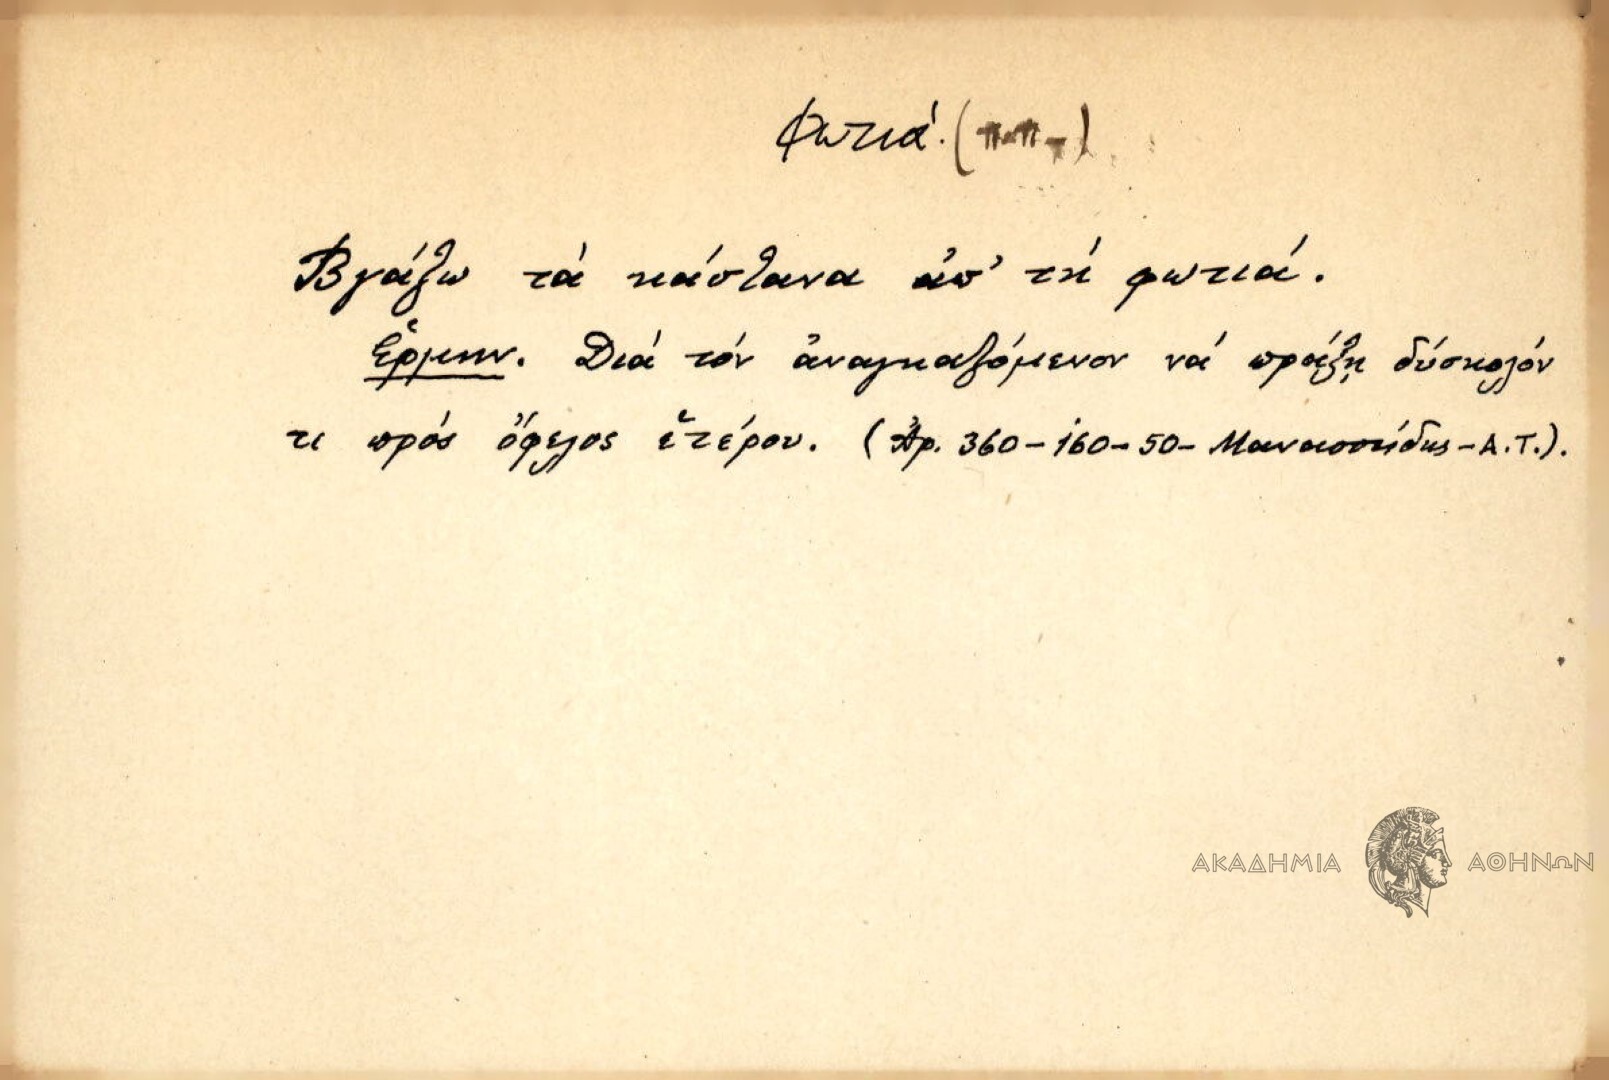 Φωτιά.
Βγάζω τά κάστανα ἀπ' τή φωτιά.
Ἑρμην. Διά τόν ἀναγκαζόμενον νά πράξῃ δύσκολόν
τι πρός ὄφελος ἑτέρου. (Ἀρ. 360-160-50- Μανασσείδης -Α.Τ.).
ΑΚΑΔΗΜΙΑ ΑΘΗΝΩΝ